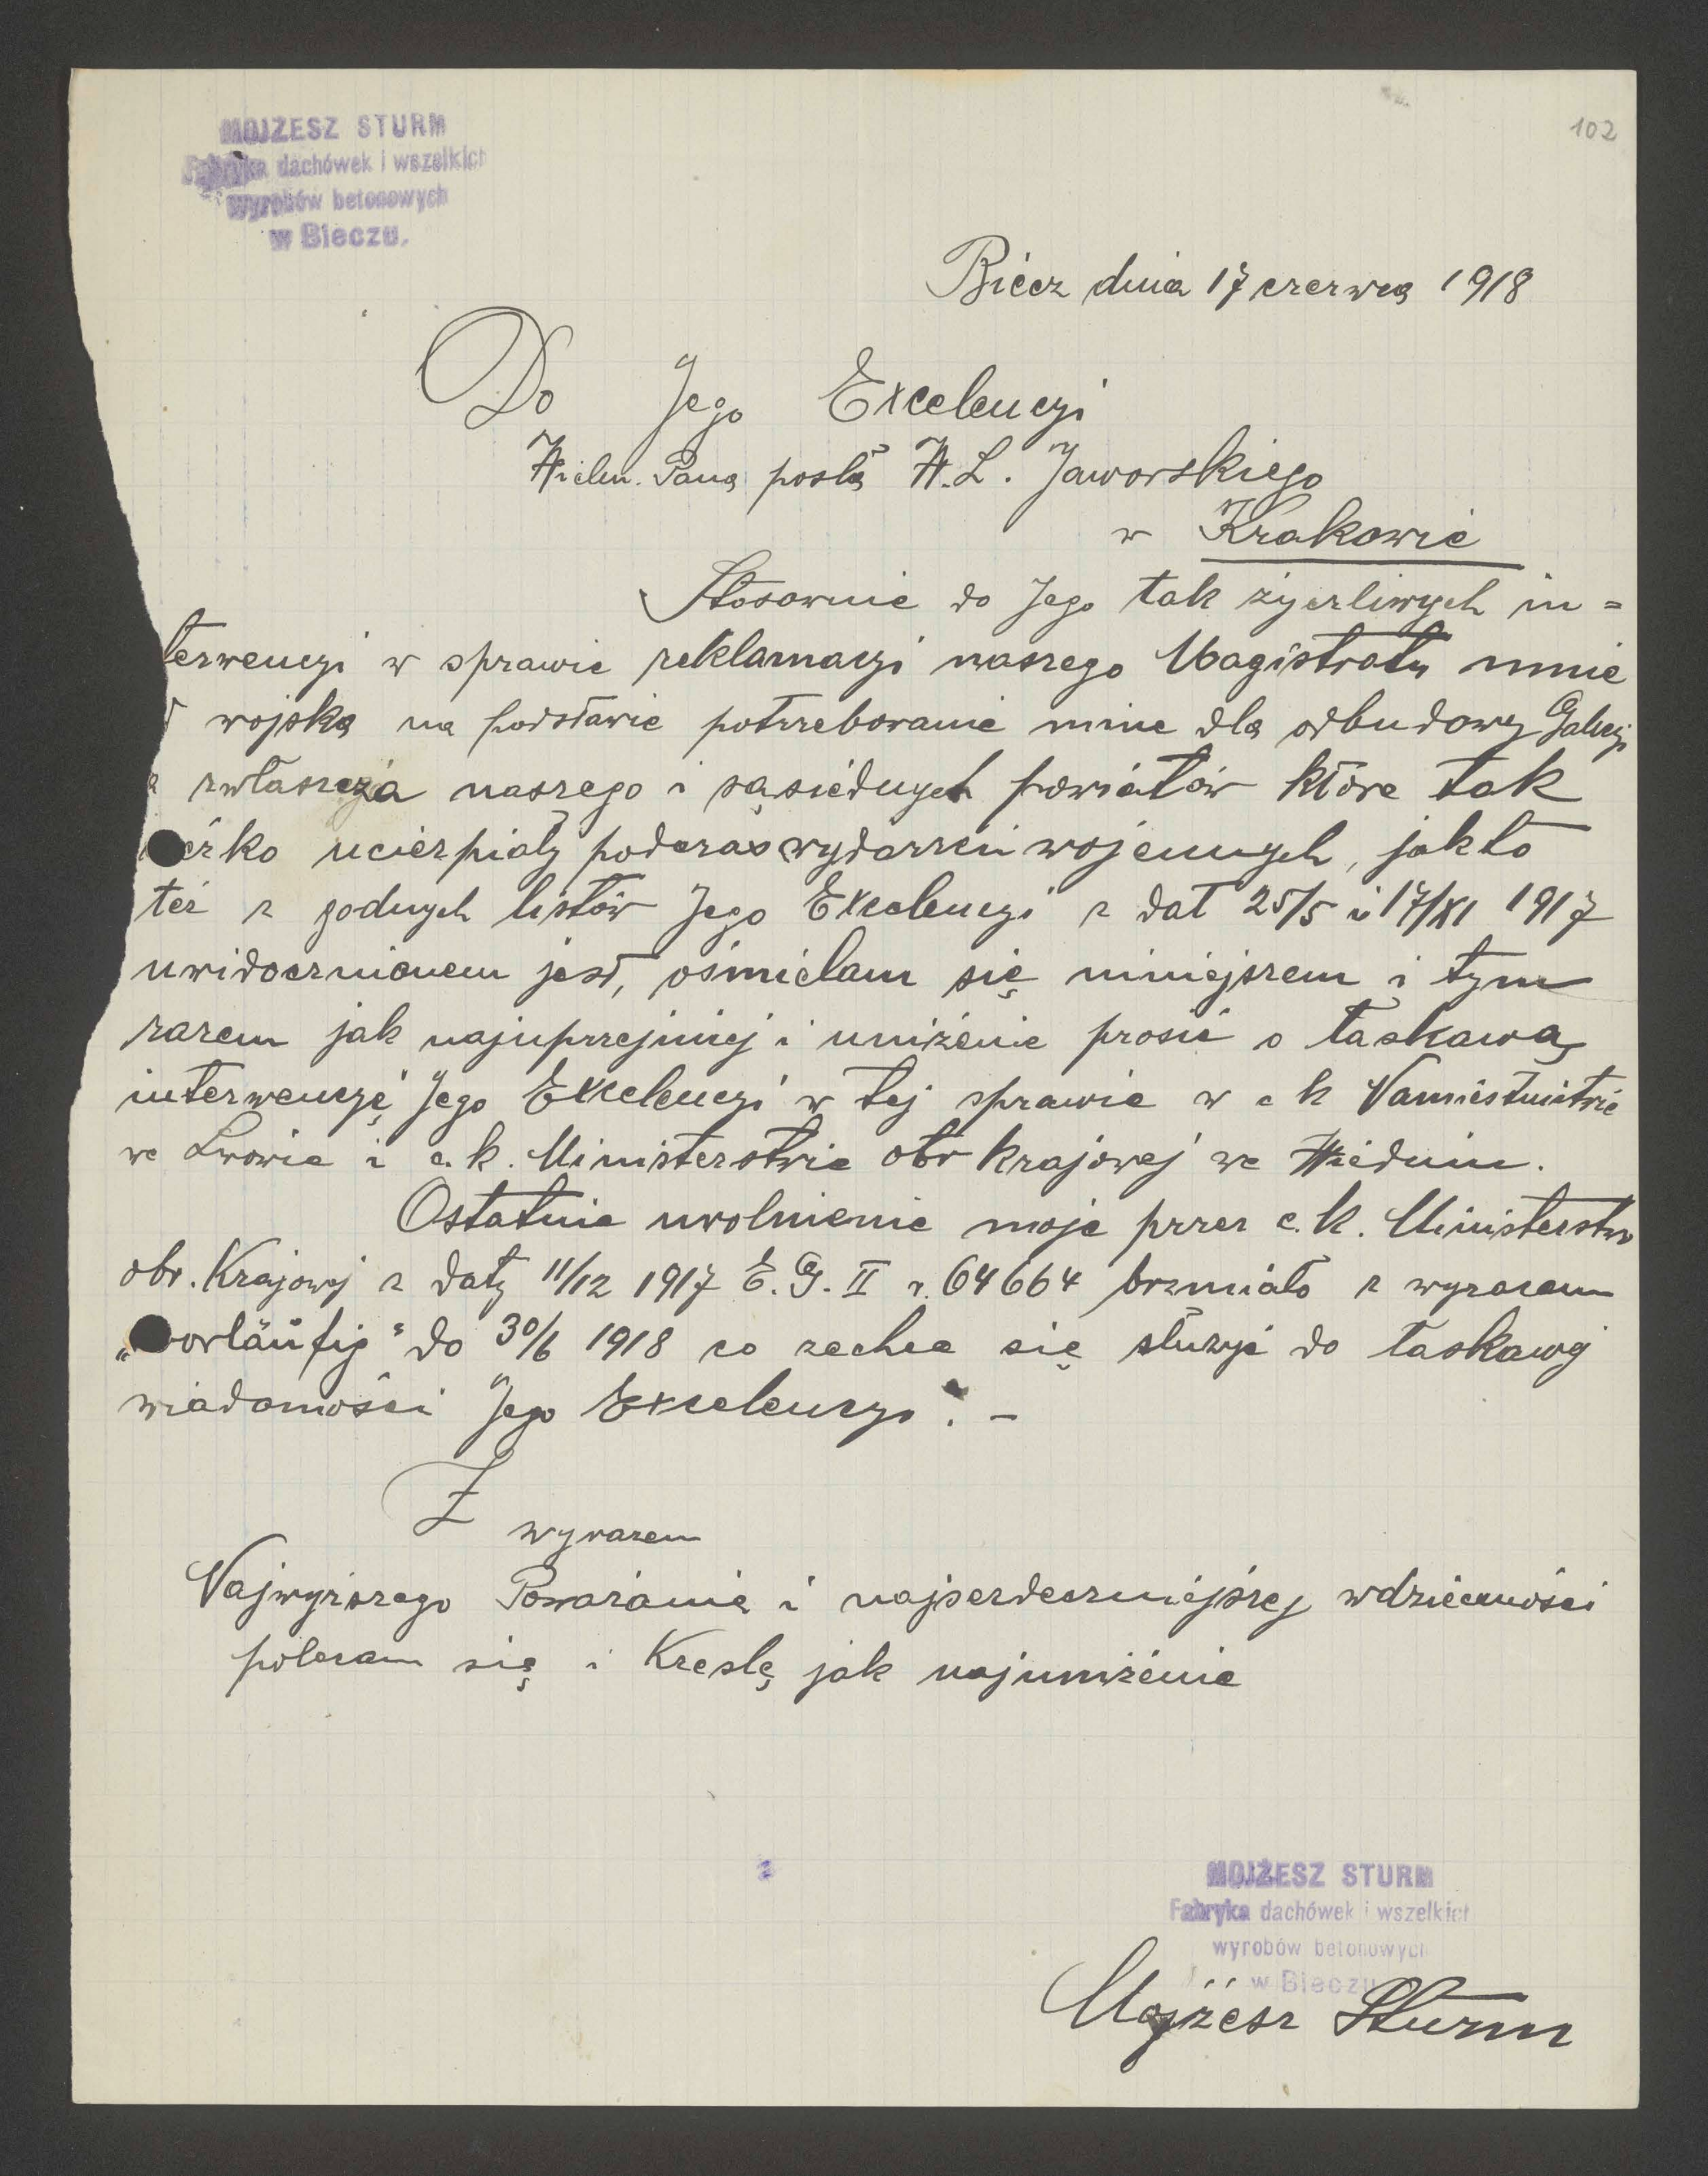 102
MOJŻESZ STURM
Fabryka dachówek i wszelkich
wyrobów betonowych
w Bieczu.
Biecz dnia 17 czerwca 1918
Do Jego Excelencyi
Wielm. Pana posła W. L. Jaworskiego
w Krakowie
Stosownie do Jego tak życzliwych in=
terwencyi w sprawie reklamacyi naszego Magistratu mnie
wojska na podstawie potrzebowanie mnie dla odbudowy Galicyi
a zwłaszcza naszego i sąsiednych powiatów które tak
ucierpiały podczas wydarzeń wojennych, jak to
też z godnych listów Jego Excelencyi z dat 25/5 i 17/XI 1917
uwidocznionem jest, ośmielam się niniejszem i tym
razem jak najuprzejmiej i uniżenie prosić o łaskawą
interwencyę Jego Excelencyi w tej sprawie w c k Namiestnitwie
we Lwowie i c. k. Ministerstwie obr krajowej we Wiedniu.
Ostatnie uwolnienie moje przez c. k. Ministerstwo
obr. Krajowej z daty 11/12 1917 E. G. II n. 64664 brzmiało z wyrazem
„vorläufig" do 30/6 1918 co zechce się służyć do łaskawej
wiadomości Jego Excelencyi. –
Z wyrazem
Najwyższego Poważania i najserdeczniejszej wdzięczności
polecam się i Kreślę jak najuniżenie
MOJŻESZ STURM
Fabryka dachówek i wszelkich
wyrobów betonowych
w Bieczu
Mojżesz Sturm